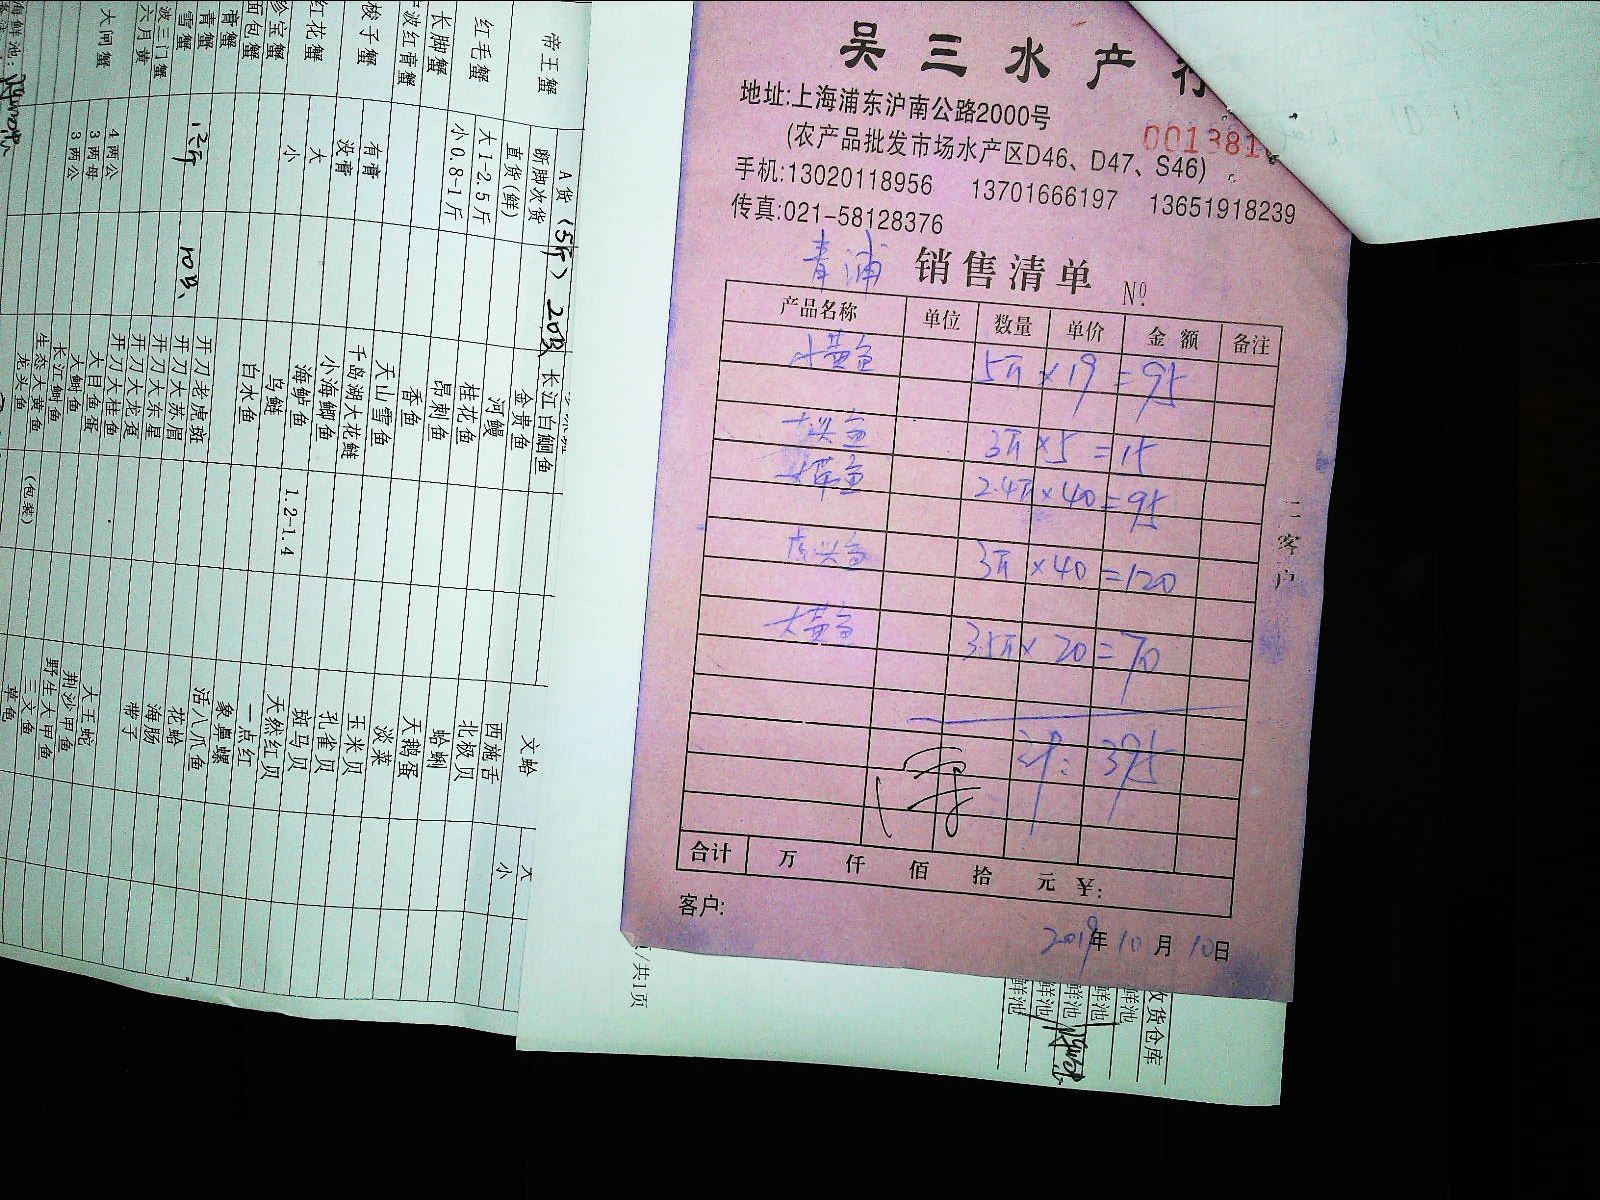 吴三水产行
地址:上海浦东沪南公路2000号
(农产品批发市场水产区D46、D47、S46)
手机:13020118956 13701666197 13651918239
传真:021-58128376
青浦 销售清单 Nº
产品名称 单位 数量 单价 金额 备注
小黄鱼 5斤 × 19 = 95
3斤 × 5 = 15
2.4斤 × 40 = 95
3斤 × 40 = 120
大黄鱼 3.5斤 × 20 = 70
计: 395
合计 万 仟 佰 拾 元 ¥:
客户:
2019年10月10日
二客户
/共1页
收货仓库
鲜池
鲜池
鲜池
鲜池
鲜池
A货 (5斤) 20只 长江白鮰鱼
帝王蟹 断脚次货 金贵鱼 文蛤 大
直货(鲜) 河鳗 西施舌 小
红毛蟹 大1-2.5斤 桂花鱼 北极贝
小0.8-1斤 昂刺鱼 蛤蜊
长脚蟹 香鱼 天鹅蛋
波红膏蟹 天山雪鱼 淡菜
梭子蟹 有膏 千岛湖大花鲢 玉米贝
没膏 小海鲫鱼 孔雀贝
红花蟹 大 海鲈鱼 1.2-1.4 斑马贝
小 鸟鲢 天然红贝
珍宝蟹 白水鱼 一点红
面包蟹 象鼻螺
膏蟹 活八爪鱼
青蟹 10只 开刀老虎斑 花蛤
雪蟹 开刀大苏眉 海肠
波三门蟹 开刀大东星 带子
六月黄 开刀大龙趸
大闸蟹 4两公 开刀大桂鱼 大王蛇
3两母 大目鱼蛋 荆沙甲鱼
3两公 大鲥鱼 野生大甲鱼
长江鲥鱼 三文鱼
生态大黄鱼 草龟
龙头鱼 (包装)
海鲜池: